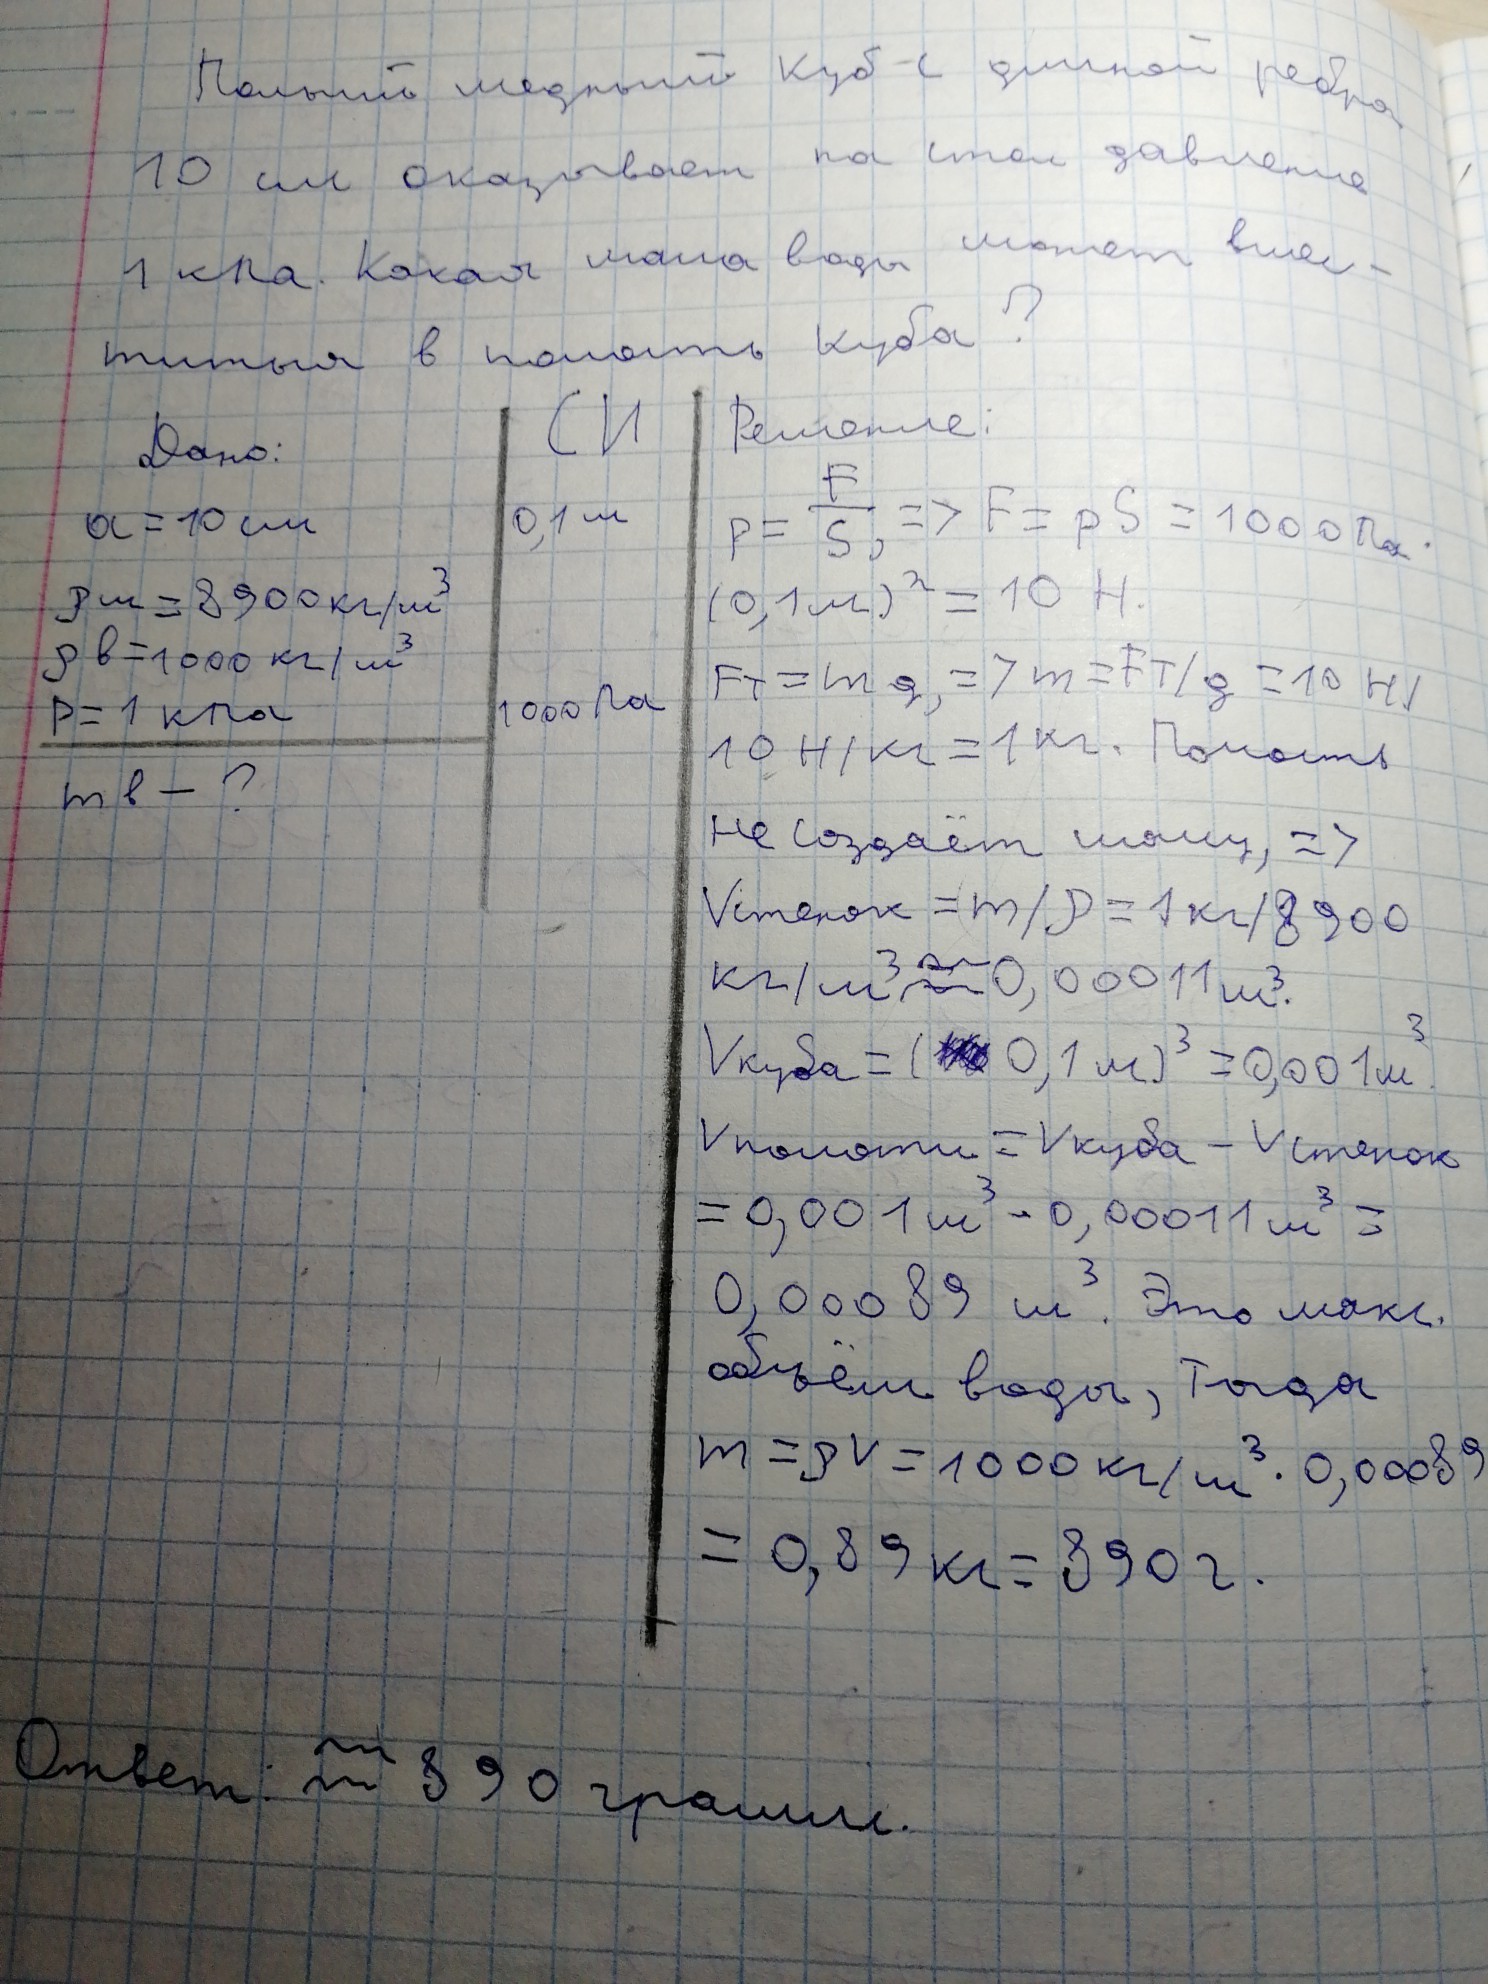 Полый медный куб с длиной ребра
10 см оказывает на стол давление
1 кПа. Какая масса воды может вмес-
титься в полость куба?
Дано:
a=10 см
ρм=8900кг/м³
ρв=1000кг/м³
P=1 кПа
mв-?
СИ
0,1м
1000Па
Решение:
p=F/S, => F=pS=1000Па·
(0,1м)²=10 Н.
Fт=mg, =>m=Fт/g=10 Н/
10 Н/кг=1кг. Полость
не создаёт массу, =>
Vстенок=m/ρ=1кг/8900
кг/м³≈0,00011м³.
Vкуба=(0,1м)³=0,001м³.
Vполости=Vкуба-Vстенок
=0,001м³-0,00011м³=
0,00089 м³. Это макс.
объём воды, Тогда
m=ρV=1000кг/м³·0,00089
=0,89кг=890г.
Ответ: ≈890 грамм.